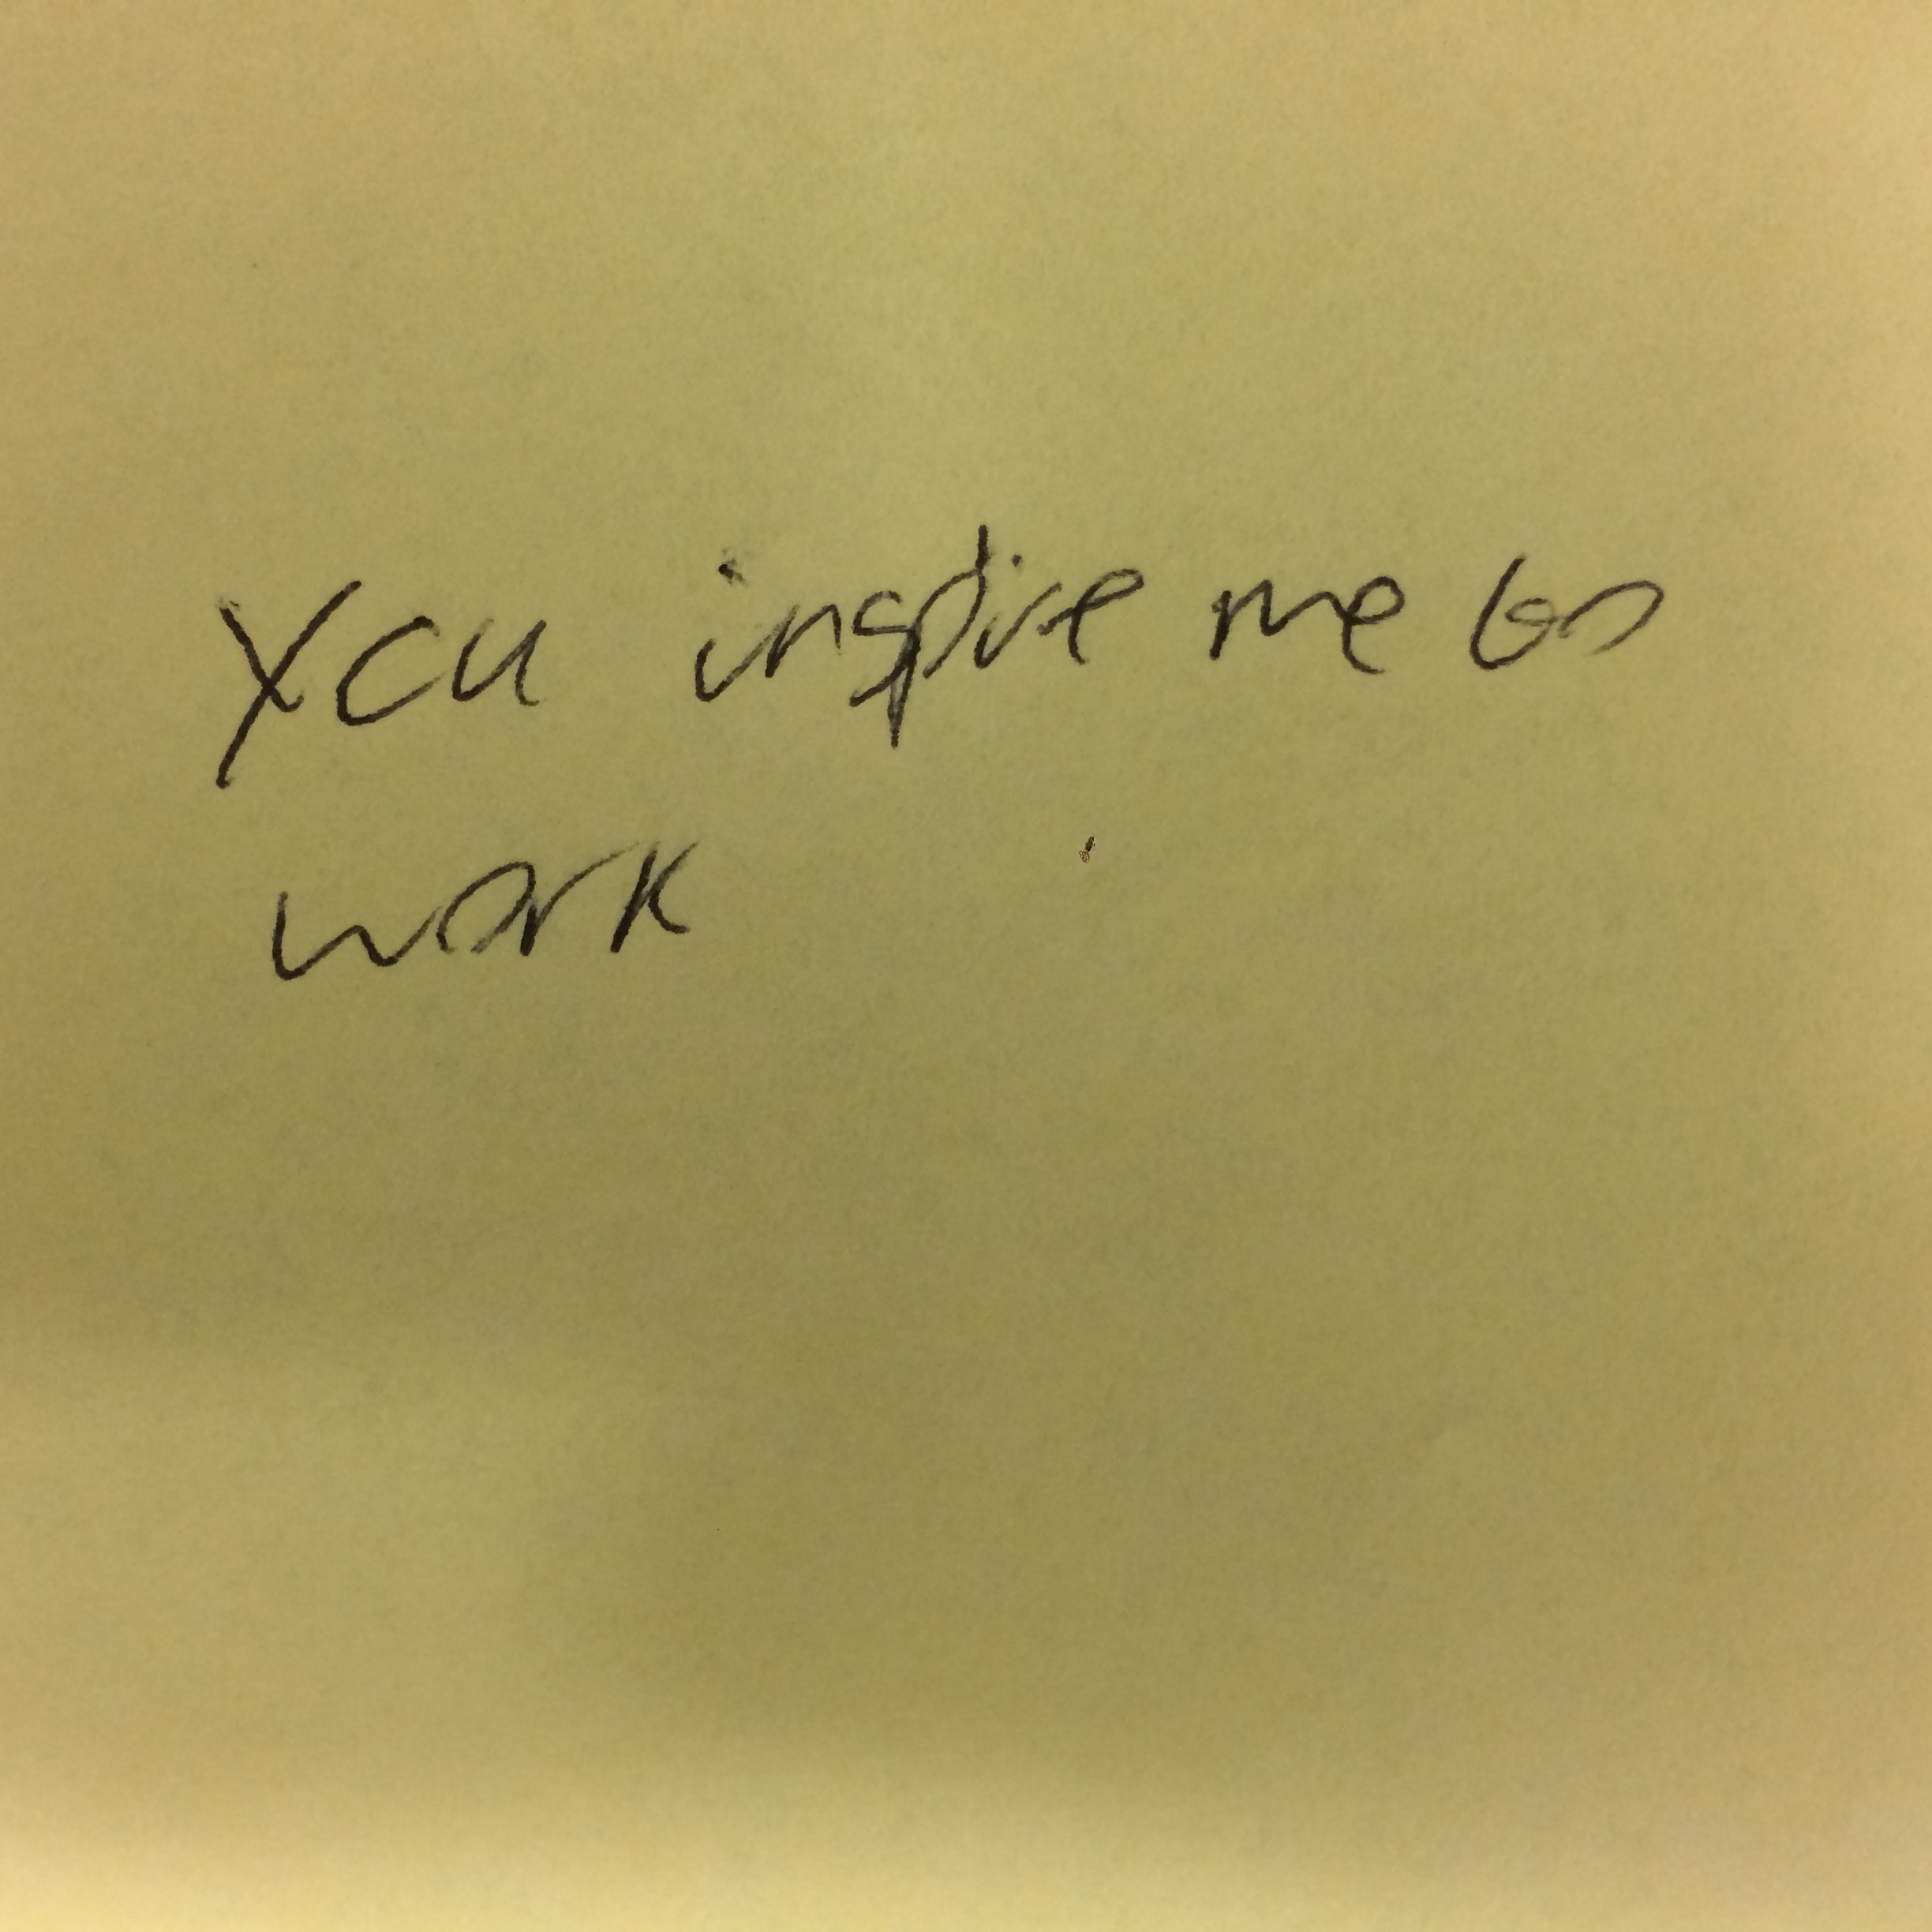 You inspire me to
work